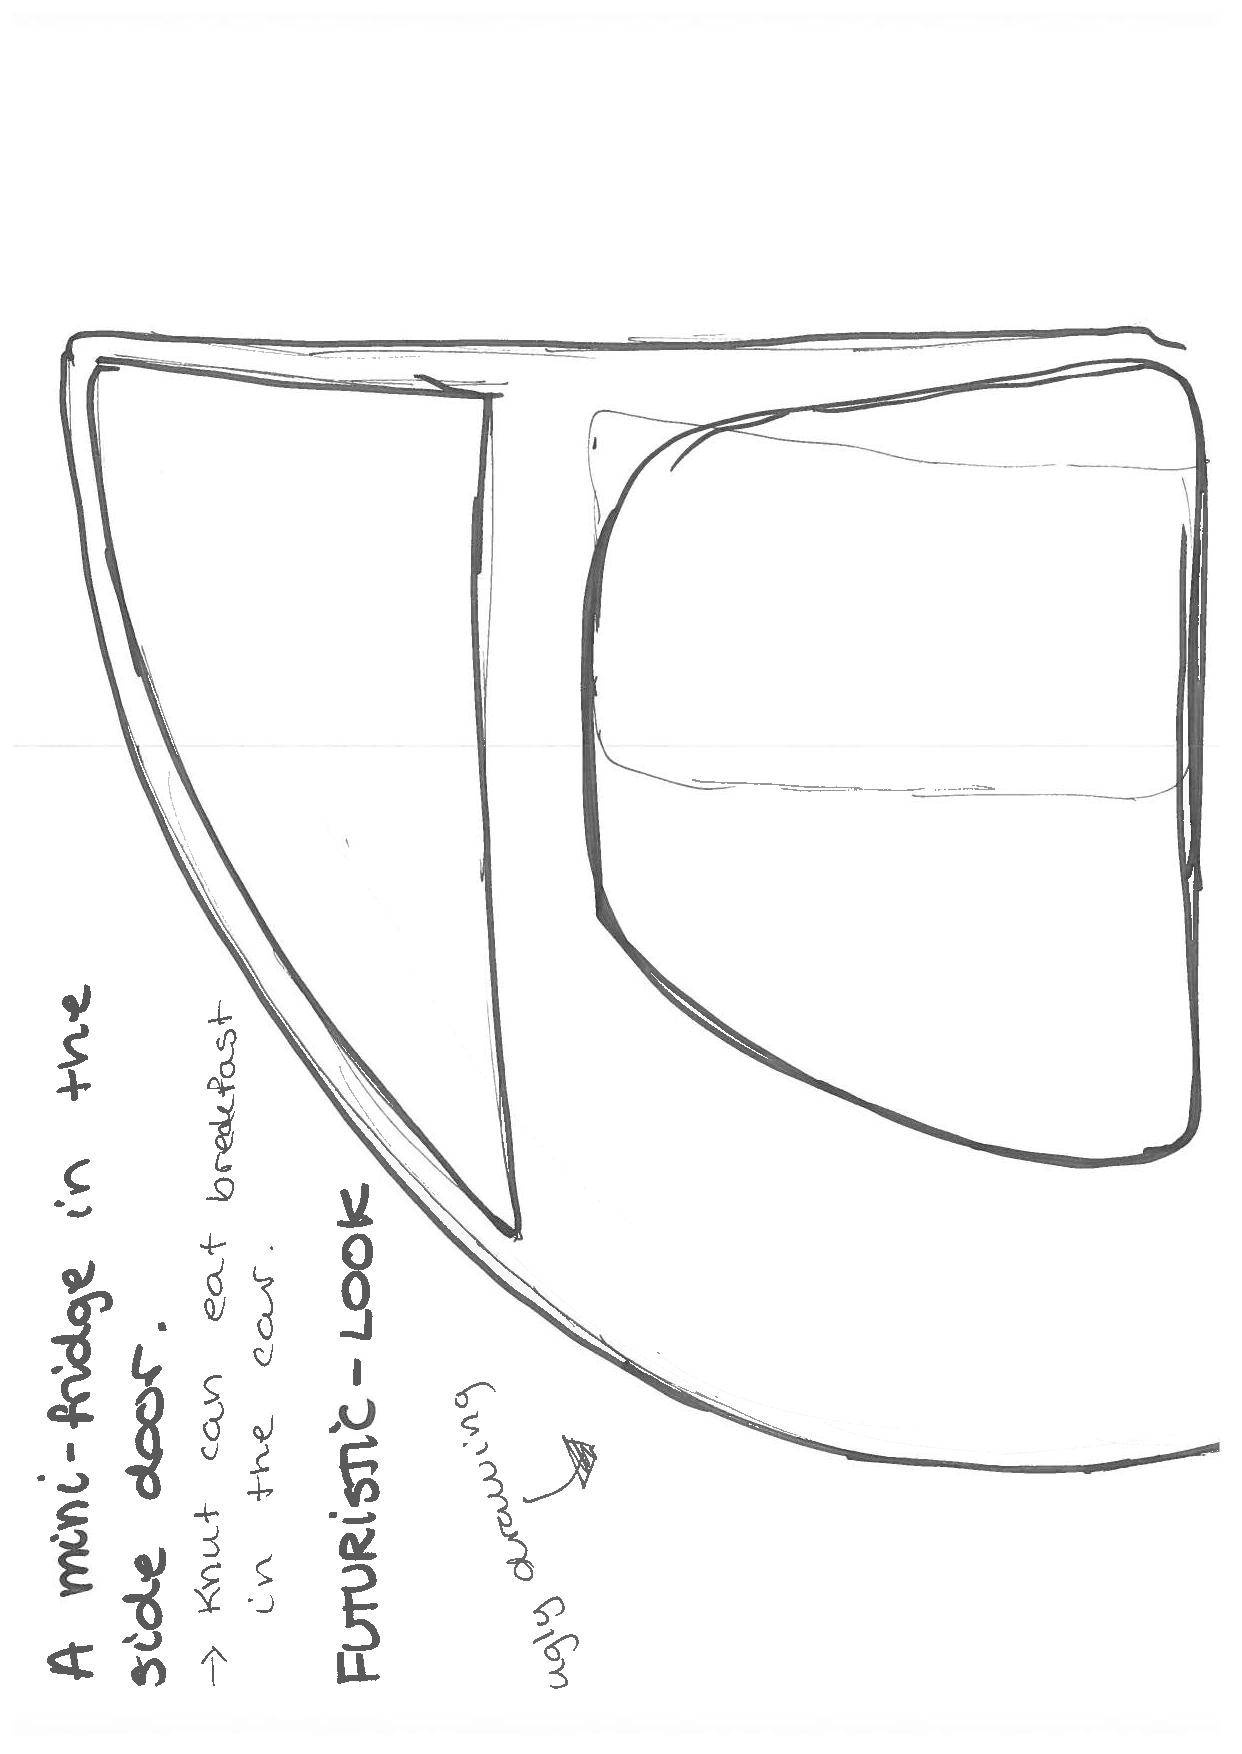 A mini-fridge in the
side door.
→ Knut can eat breakfast
in the car.
FUTURISTIC-LOOK
ugly drawing